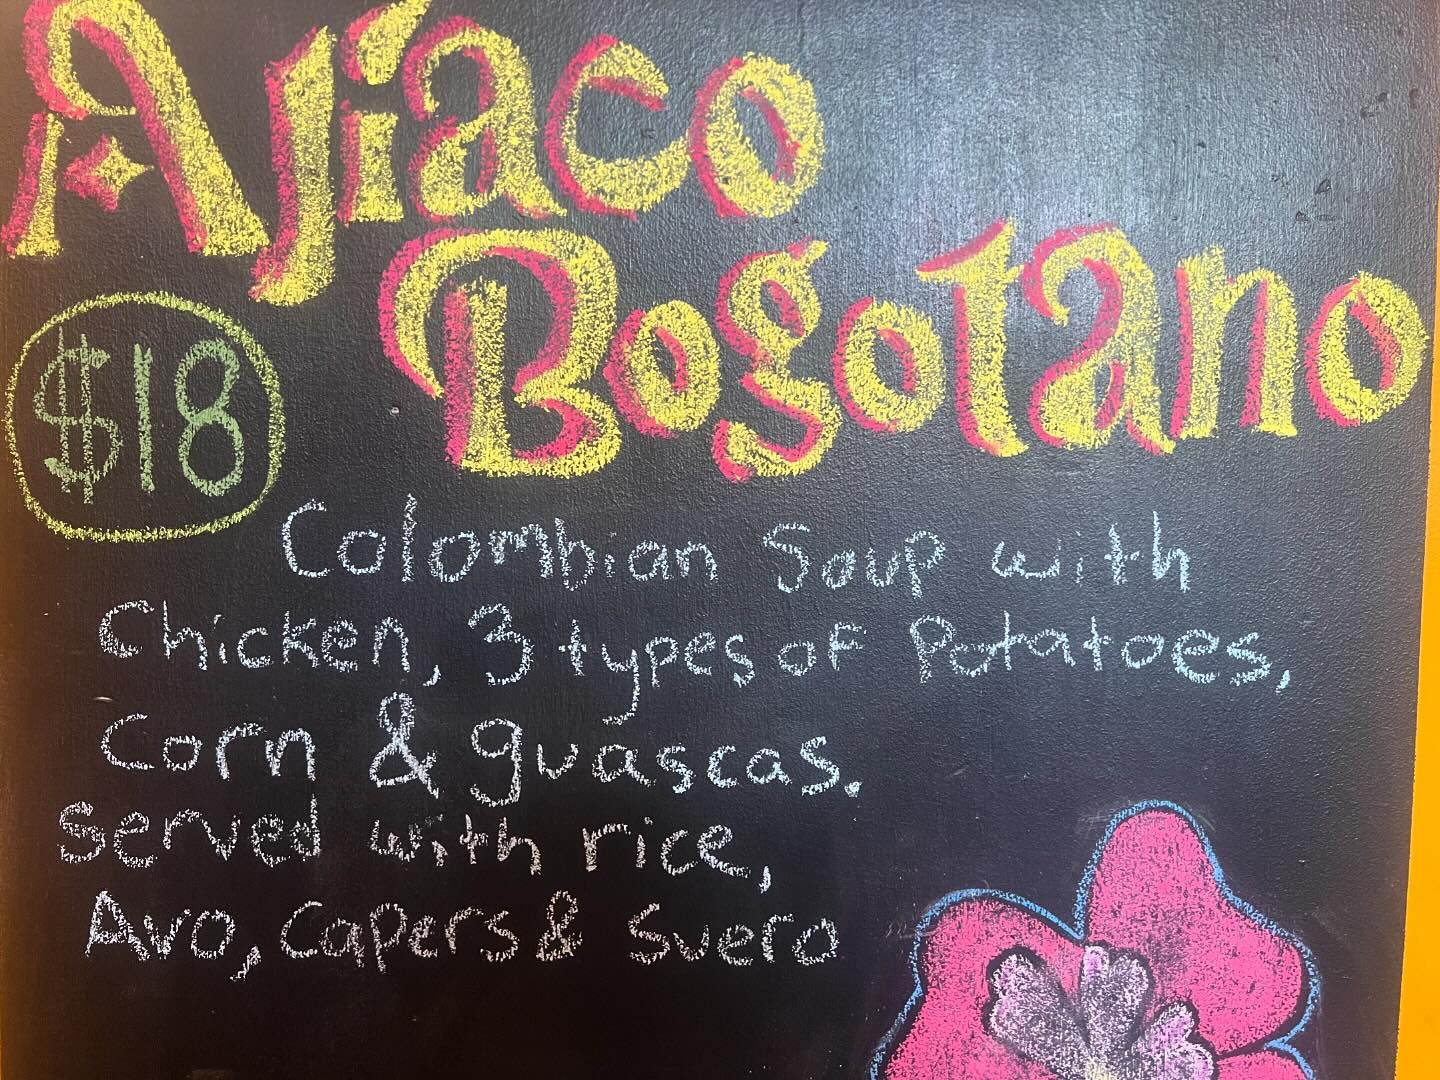 Ajiaco
Bogotano
$18
Colombian Soup with
Chicken, 3 types of Potatoes,
Corn & guascas.
Served with rice,
Avo, Capers & Suero